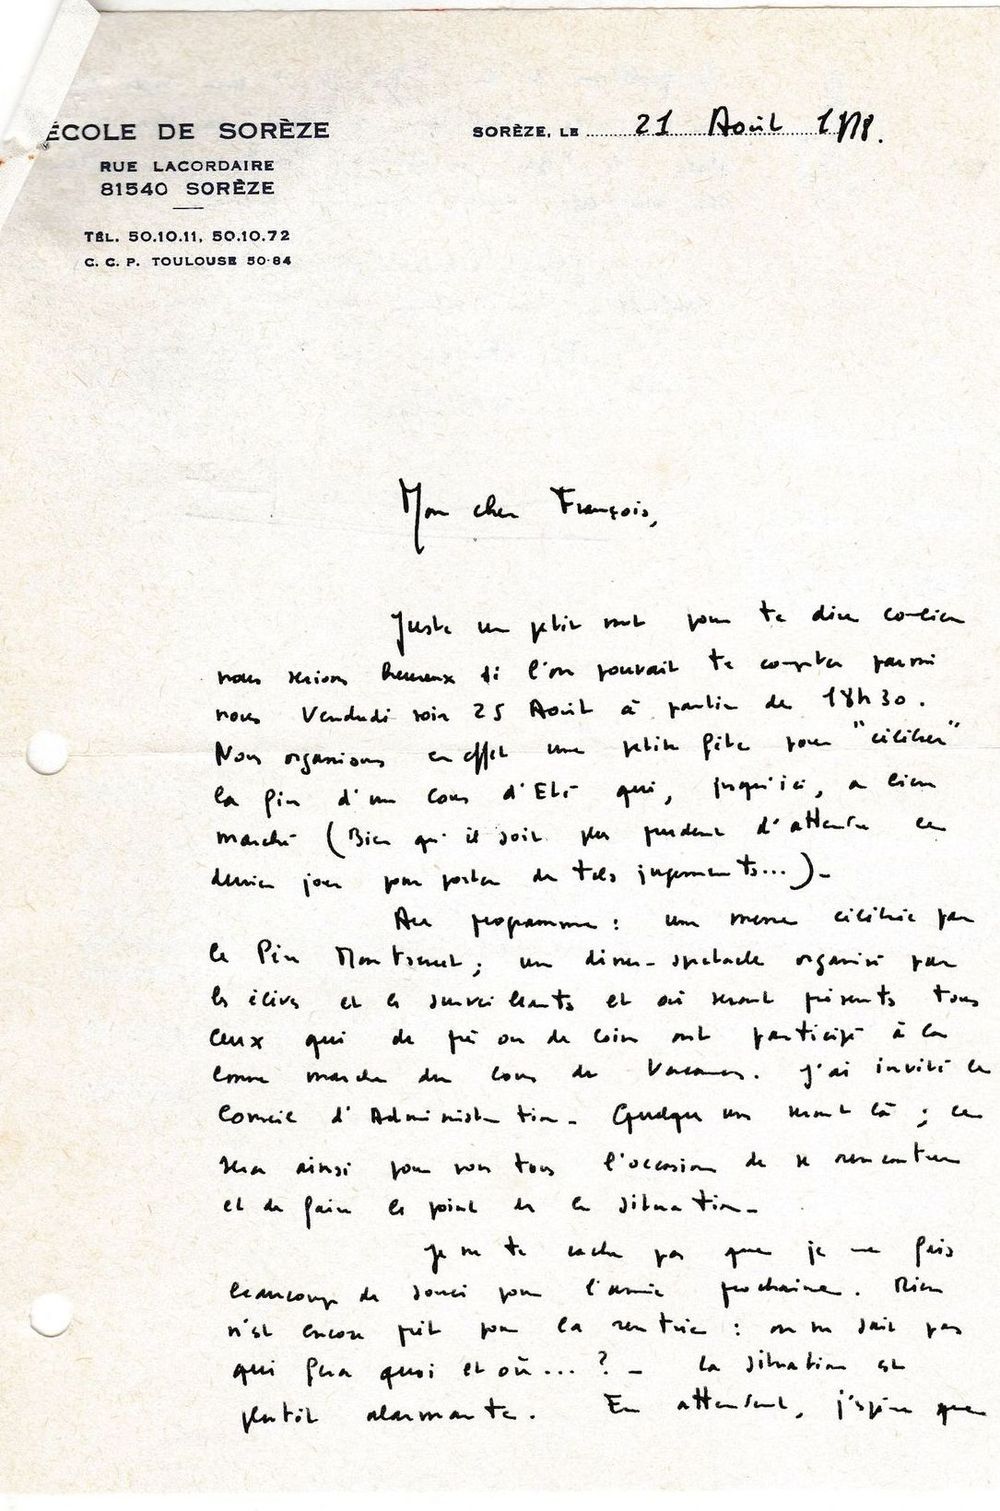 ÉCOLE DE SORÈZE
RUE LACORDAIRE
81540 SORÈZE
TÉL. 50.10.11, 50.10.72
C. C. P. TOULOUSE 50-84
SORÈZE, LE 21 Août 1978.
Mon cher François,
Juste un petit mot pour te dire combien
nous serions heureux si l'on pouvait te compter parmi
nous Vendredi soir 25 Août à partir de 18h30.
Nous organisons en effet une petite fête pour "célébrer"
la fin d'un Cours d'Eté qui, jusqu'ici, a bien
marché (Bien qu'il soit plus prudent d'attendre le
dernier jour pour porter de tels jugements...).
Au programme : une messe célébrée par
le Père Montserret ; un diner-spectacle organisé par
les élèves et les surveillants et où seront présents tous
ceux qui de près ou de loin ont participé à la
bonne marche du cours de Vacances. J'ai invité le
Conseil d'Administration. Quelques uns seront là ; ce
sera ainsi pour nous tous l'occasion de se rencontrer
et de faire le point de la situation.
Je ne te cache pas que je me fais
beaucoup de souci pour l'année prochaine. Rien
n'est encore prêt pour la rentrée : on ne sait pas
qui fera quoi et où... ? - La situation est
plutôt alarmante. En attendant, j'espère que